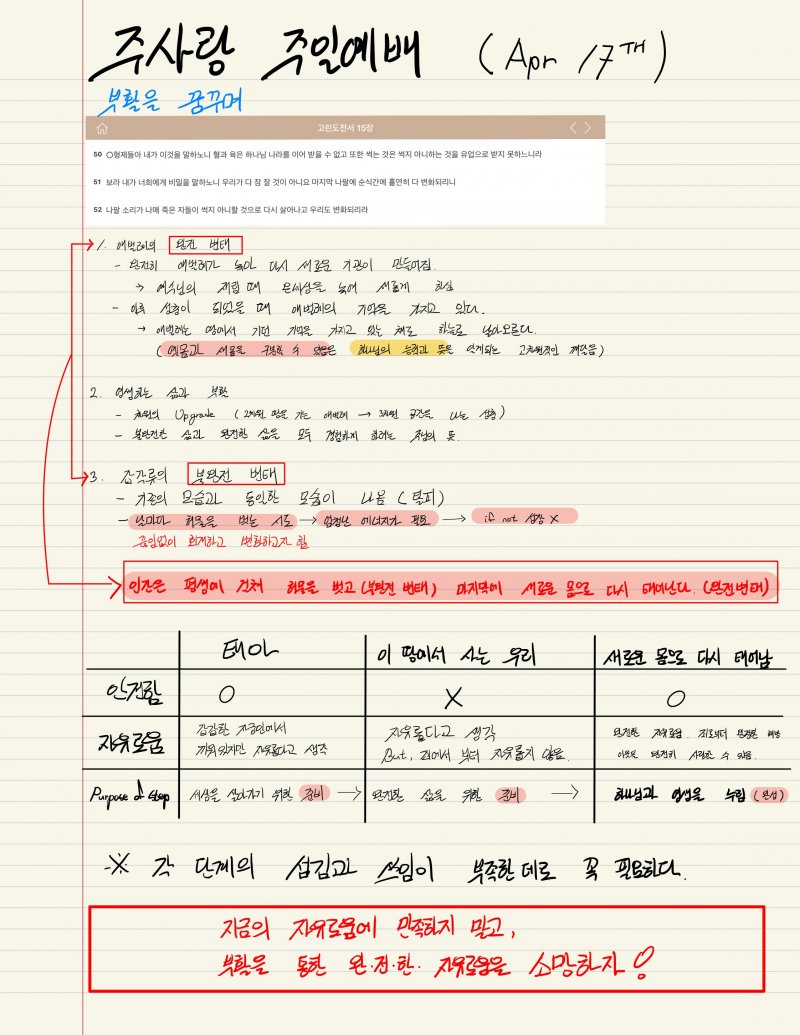 주사랑 주일예배 (Apr 17th)
부활을 꿈꾸며
고린도전서 15장
50 ○형제들아 내가 이것을 말하노니 혈과 육은 하나님 나라를 이어 받을 수 없고 또한 썩는 것은 썩지 아니하는 것을 유업으로 받지 못하느니라
51 보라 내가 너희에게 비밀을 말하노니 우리가 다 잠 잘 것이 아니요 마지막 나팔에 순식간에 홀연히 다 변화되리니
52 나팔 소리가 나매 죽은 자들이 썩지 아니할 것으로 다시 살아나고 우리도 변화되리라
1. 애벌레의 완전 변태
- 완전히 애벌레가 녹아 다시 새로운 기관이 만들어짐.
→ 예수님의 재림 때 온세상을 녹여 새롭게 하심
- 이후 성충이 되었을 때 애벌레의 기억을 가지고 있다.
→ 애벌레는 땅에서 기던 기억을 가지고 있는 채로 하늘로 날아오른다.
(옛몸과 새몸을 구분할 수 있음은 하나님의 능력과 뜻을 알게되는 고차원적인 깨달음)
2. 영생하는 삶과 부활
- 차원의 Upgrade (2차원 땅을 기는 애벌레 → 3차원 공간을 나는 성충)
- 불완전한 삶과 완전한 삶을 모두 경험하게 하려는 주님의 뜻.
3. 갑각류의 불완전 변태
- 기존의 모습과 동일한 모습이 나옴 (탈피)
- 날마다 허물을 벗는 시도 → 엄청난 에너지가 필요 → if not 성장 X
끊임없이 회개하고 변화하고자 함
인간은 평생에 걸쳐 허물을 벗고 (불완전 변태) 마지막에 새로운 몸으로 다시 태어난다. (완전변태)
태아 이 땅에서 사는 우리 새로운 몸으로 다시 태어남
안전함 O X O
자유로움 갑갑한 자궁안에서 자유롭다고 생각 완전한 자유로움. 죄로부터 완전한 해방
끼워있지만 자유롭다고 생각 But, 죄에서 부터 자유롭지 않음. 이웃을 완전히 사랑할 수 있음.
Purpose of step 세상을 살아가기 위한 준비 → 완전한 삶을 위한 준비 → 하나님과 영생을 누림 (완성)
※ 각 단계의 섭김과 쓰임이 부족한데로 꼭 필요하다.
지금의 자유로움에 만족하지 말고,
부활을 통한 완·전·한· 자유로움을 소망하자!